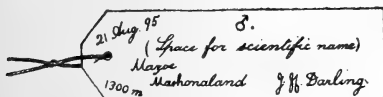 21 Aug. 95 ♂.
(Space for scientific name)
Mazoe
Mashonaland
1300 m
J. ff. Darling.